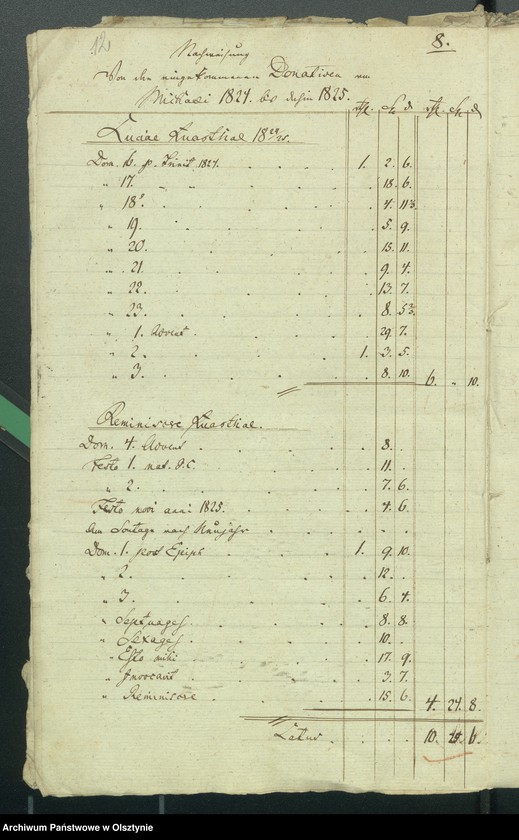 12
8.
Nachweisung
Von den eingekommenen Donativen von
Michaeli 1824. bis dahin 1825.
rtl. ch d rtl. ch d
Luciae Quarthal 1824/25.
Dom. 16. p. Trinit. 1824. 1. 2. 6.
" 17. " " 18. 6.
" 18. 4.
" 19. 5. 9.
" 20. 15. 11.
" 21. 9. 4.
" 22. 13. 7.
" 23. 8.
" 1. Advent 29. 7.
" 2. 1. 3. 5.
" 3. 8. 10. 6. " 10.
Reminiscere Quarthal.
Dom. 4. Advent 8.
Festo 1. nat. J.C. 11.
" 2. 7. 6.
Festo novi anni 1825. 4. 6.
Am Sontage nach Neujahr
Dom. 1. post Epiph 1. 9. 10.
" 2. 12.
" 3. 6. 4.
" Septuages. 8. 8.
" Sexages. 10.
" Esto mihi 17. 9.
" Invocavit 3. 7.
" Reminiscere 15. 6. 4. 24. 8.
Latus 10. 6.
Archiwum Państwowe w Olsztynie